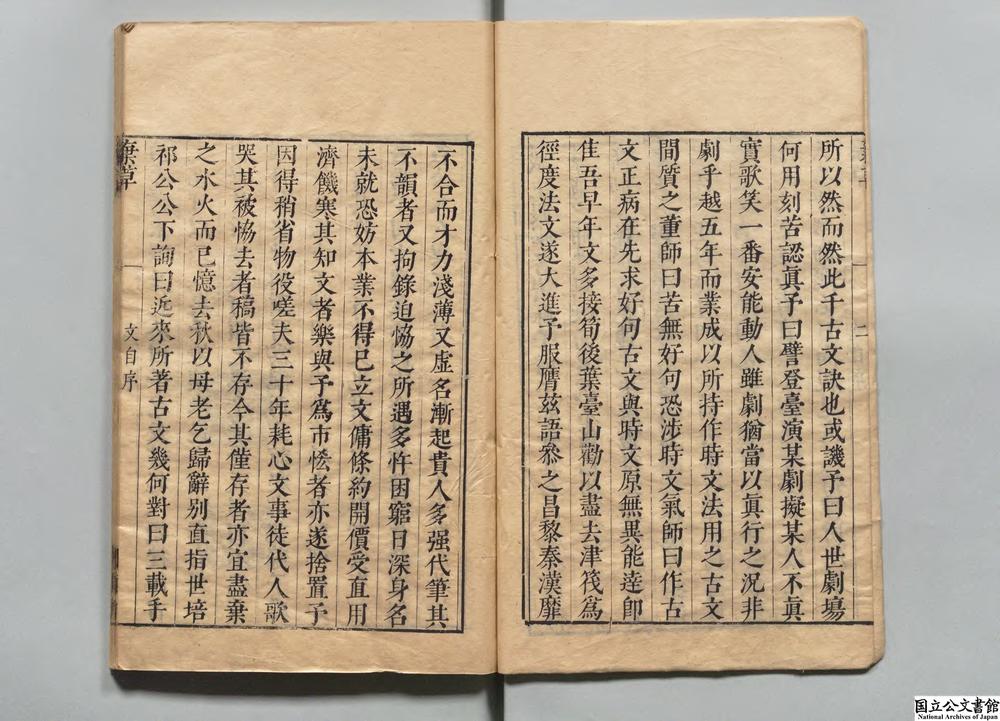 所以然而然此千古文訣也或譏予曰人世劇塲
何用刻苦認眞予曰譬登臺演某劇擬某人不眞
實歌笑一番安能動人雖劇猶當以眞行之況非
劇乎越五年而業成以所持作時文法用之古文
間質之董師曰苦無好句恐涉時文氣師曰作古
文正病在先求好句古文與時文原無異能達卽
佳吾早年文多接筍後葉臺山勸以盡去津筏爲
徑度法文遂大進予服膺玆語參之昌黎秦漢靡
二
不合而才力淺薄又虛名漸起貴人多强代筆其
不韻者又拘錄迫恊之所遇多忤困窮日深身名
未就恐妨本業不得已立文傭條約開價受直用
濟饑寒其知文者樂與予爲市恡者亦遂捨置予
因得稍省物役嗟夫三十年耗心文事徒代人歌
哭其被恊去者稿皆不存今其僅存者亦宜盡棄
之水火而已憶去秋以母老乞歸辭别直指世培
祁公公下詢曰近來所著古文幾何對曰三載手
棄草
文自序
国立公文書館
National Archives of Japan